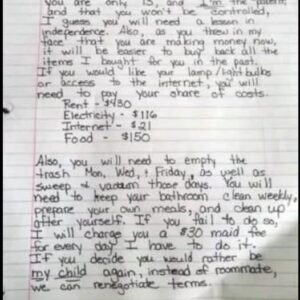 you are only 13, and I'm the parent,
and that you won't be controlled,
I guess you will need a lesson in
independence. Also, as you threw in my
face that you are making money now,
it will be easier to buy back all the
items I bought for you in the past.
If you would like your lamp/lightbulbs
or access to the internet, you will
need to pay your share of costs.
Rent - $430
Electricity - $116
Internet - $21
Food - $150
Also, you will need to empty the
trash Mon, Wed, + Friday, as well as
sweep + vacuum those days. You will
need to keep your bathroom clean weekly,
prepare your own meals, and clean up
after yourself. If you fail to do so,
I will charge you a $30 maid fee
for every day I have to do it.
If you decide you would rather be
my child again, instead of roommate,
we can renegotiate terms.